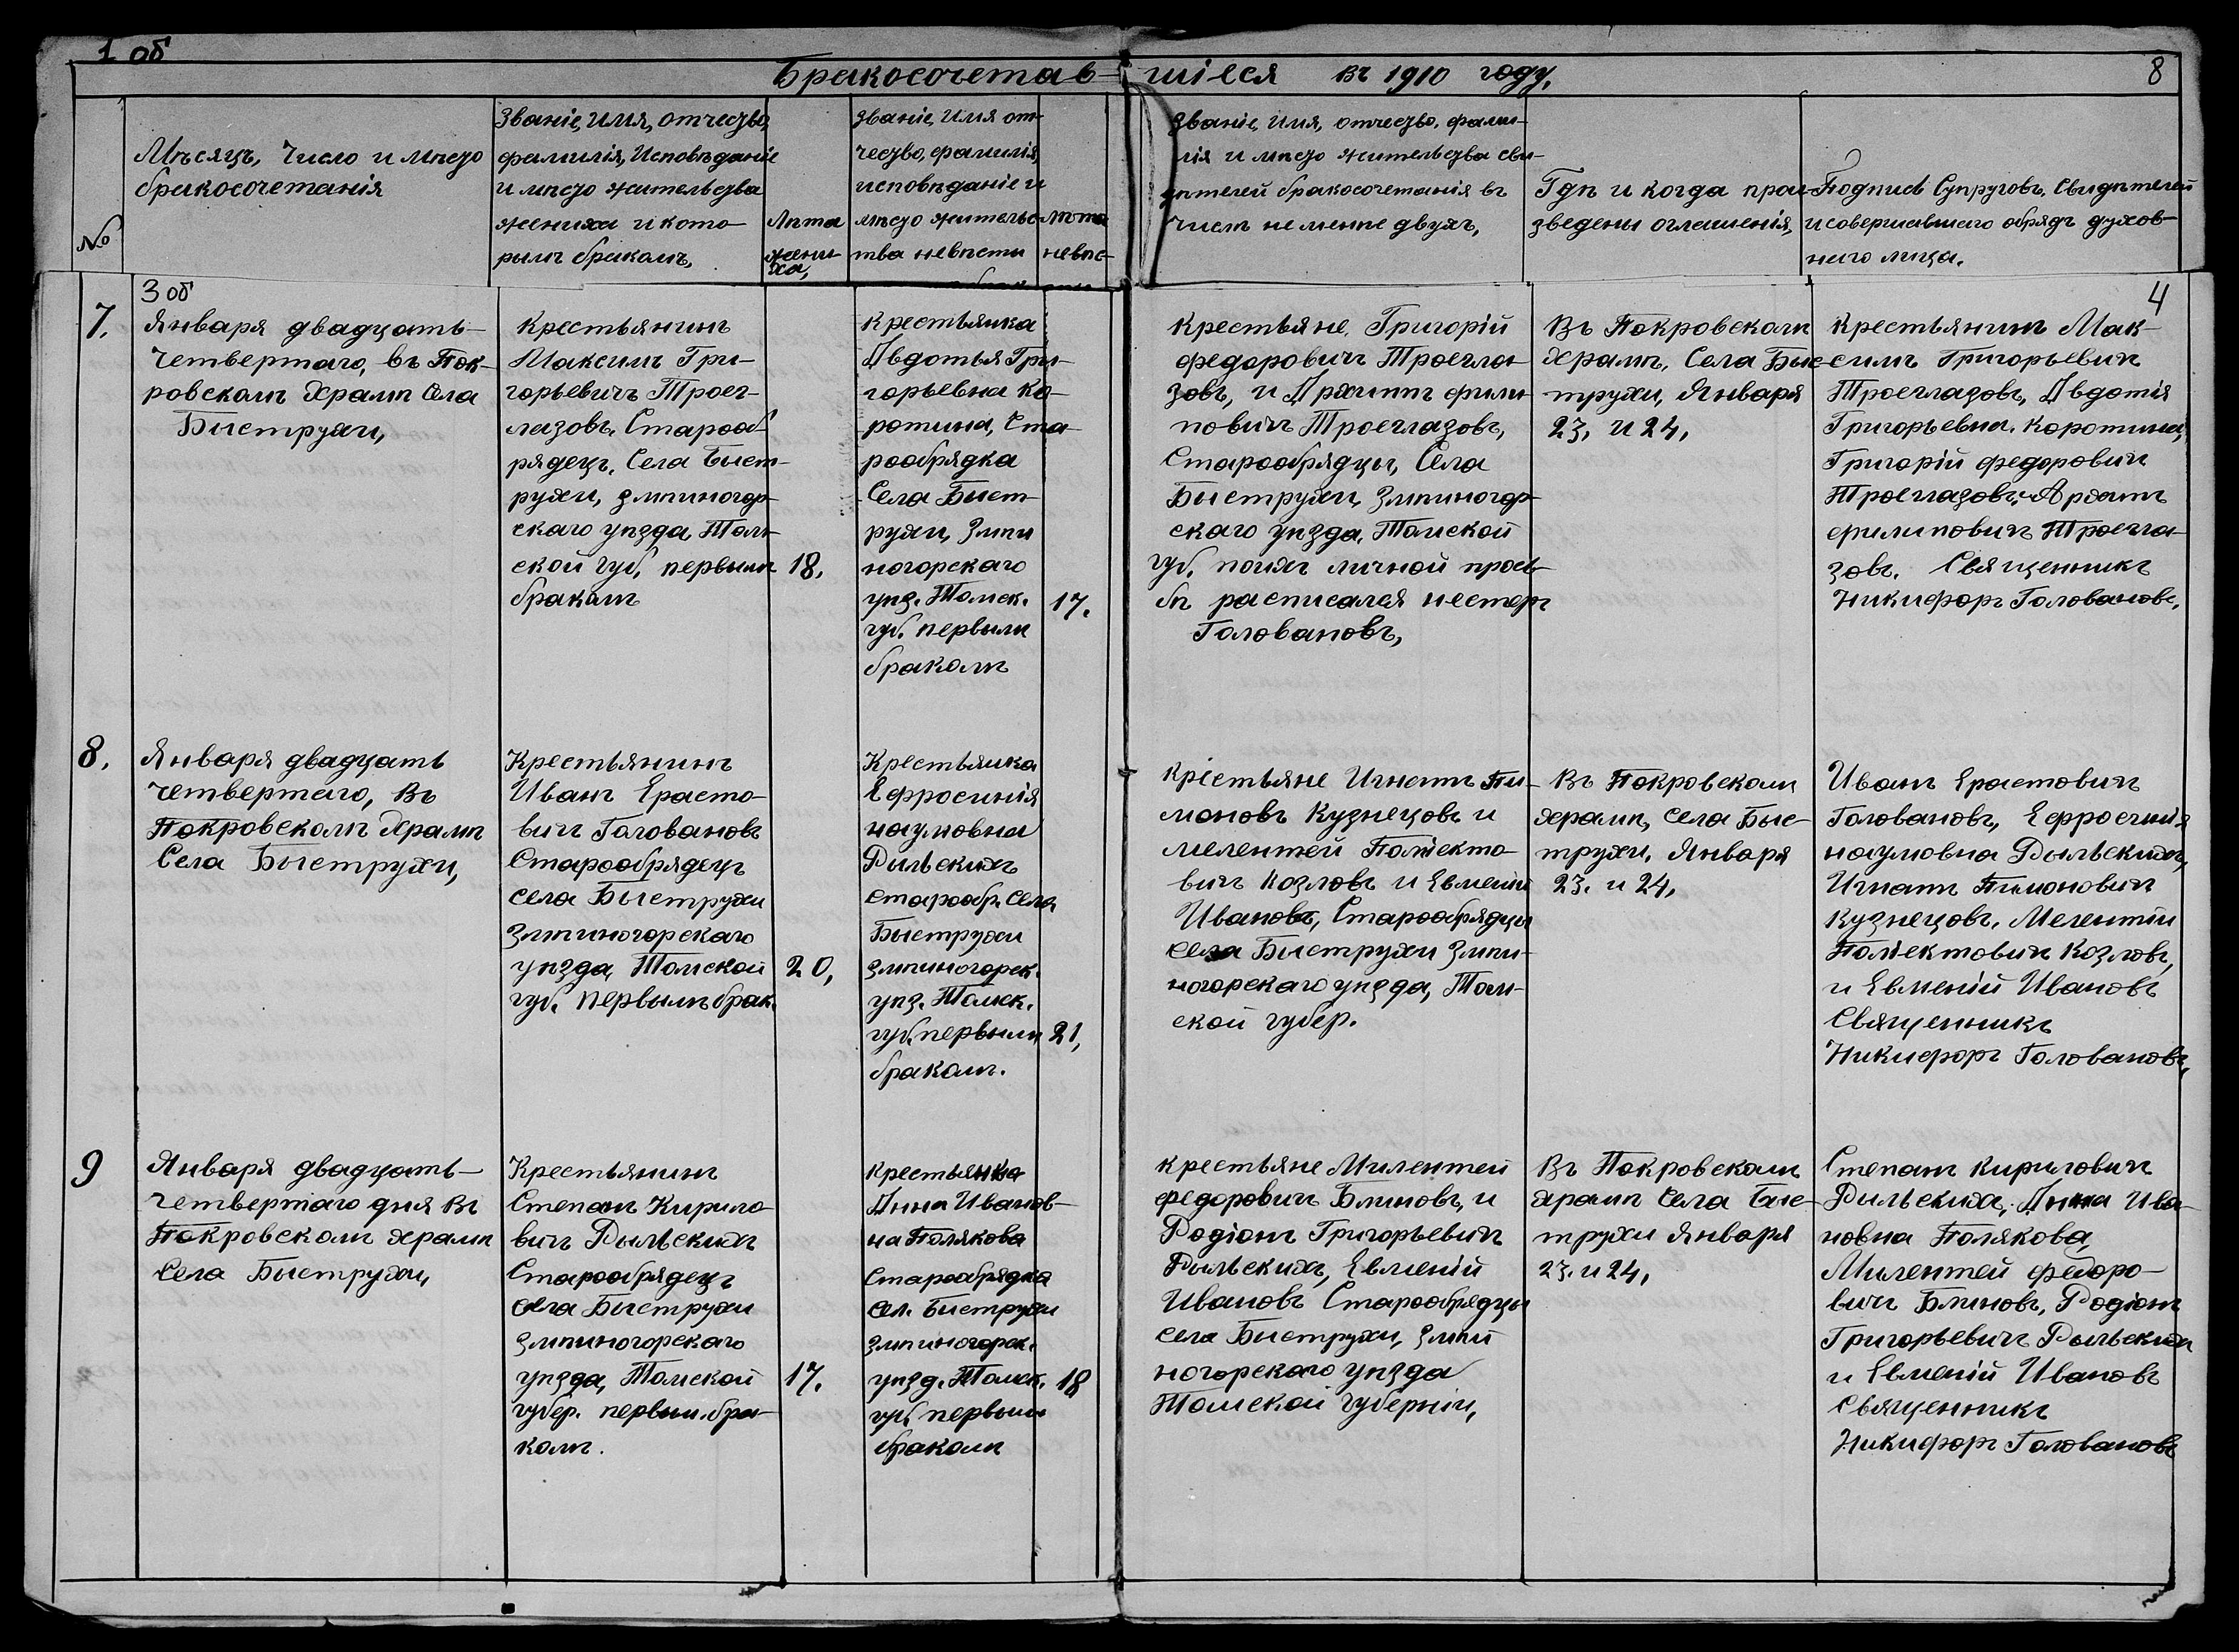 1 об
Бракосочетав-шіеся въ 1910 году.
8
№
Мѣсяцъ, Число и мѣсто
бракосочетанія
Званіе, имя, отчество,
фамилія, Исповѣданіе
и мѣсто жительства
жениха и кото-
рымъ бракомъ,
Лѣта
жени-
ха,
Званіе, имя от-
чество, фамилія,
исповѣданіе и
мѣсто жительс-
тва невѣсты
лѣта
невѣс-
Званіе, имя, отчество, фами-
лія и мѣсто жительства сви-
дѣтелей бракосочетанія въ
числѣ не менѣе двухъ,
Гдѣ и когда прои-
зведены оглашенія,
Подпись Супруговъ, Свидѣтелей
и совершавшаго обрядъ духов-
наго лица.
3 об
4
7.
Января двадцать-
четвертаго, въ Пок-
ровскомъ Храмѣ Села
Быструхи,
Крестьянинъ
Максимъ Гри-
горьевичъ Троег-
лазовъ, Старооб-
рядецъ, Села Быст-
рухи, змѣиногор-
скаго уѣзда, Том-
ской губ. первымъ
бракомъ
18.
Крестьянка
Авдотья Гри-
горьевна Ко-
ротина, Ста-
рообрядка
Села Быст-
рухи, Змѣи
ногорскаго
уѣз. Томск.
губ. первымъ
бракомъ
17.
Крестьяне, Григорій
федоровичъ Троегла-
зовъ, и Архипъ фили-
повичъ Троеглазовъ,
Старообрядцы, Села
Быструхи, Змѣиногор-
скаго уѣзда, Томской
губ. по ихъ личной прось-
бѣ расписался Несторъ
Головановъ,
Въ Покровскомъ
храмѣ, Села Быс-
трухи, Января
23. и 24,
Крестьянинъ Мак-
симъ Григорьевичъ
Троеглазовъ, Авдотія
Григорьевна Коротина,
Григорій федоровичъ
Троеглазовъ, Архипъ
филиповичъ Троегла-
зовъ. Священникъ
Никифоръ Головановъ,
8.
Января двадцать
четвертаго, Въ
Покровскомъ Храмѣ
Села Быструхи,
Крестьянинъ
Иванъ Ерасто-
вичъ Головановъ
Старообрядецъ
села Быструхи
Змѣиногорскаго
уѣзда, Томской
губ. первымъ брак.
20,
Крестьянка
Ефросинія
наумовна
Рыльскихъ
старообр. Села
Быструхи
змѣиногорск.
уѣз. Томск.
губ. первымъ
бракомъ.
21,
Крістьяне Игнатъ Пи-
моновъ Кузнецовъ и
мелентей Полиекто-
вичъ Козловъ и Евменій
Ивановъ, Старообрядцы
села Быструхи Змѣи-
ногорскаго уѣзда, Том-
ской губер.
Въ Покровскомъ
храмѣ, села Быс-
трухи, Января
23. и 24,
Иванъ Ерастовичъ
Головановъ, Ефросинія
наумовна Рыльскихъ,
Игнатъ Пимоновичъ
Кузнецовъ, Мелентій
Полиектовичъ Козловъ,
и Евменій Ивановъ
Священникъ
Никифоръ Головановъ,
9
Января двадцать-
четвертаго дня Въ
Покровскомъ храмѣ
Села Быструхи,
Крестьянинъ
Степанъ Кирило-
вичъ Рыльскихъ
Старообрядецъ
села Быструхи
змѣиногорскаго
уѣзда, Томской
губер. первым. бра-
комъ.
17.
Крестьянка
Анна Иванов-
на Полякова
Старообрядка
сел. Быструхи
змѣиногорск.
уѣзд. Томск.
губ. первымъ
бракомъ
18
Крестьяне Милентей
федоровичъ Блиновъ, и
Родіонъ Григорьевичъ
Рыльскихъ, Евменій
Ивановъ Старообрядцы
села Быструхи, змѣи
ногорскаго уѣзда
Томской губерніи,
Въ Покровскомъ
храмѣ Села Быс-
трухи Января
23. и 24,
Степанъ Кириловичъ
Рыльскихъ, Анна Ива-
новна Полякова,
Милентей федоро-
вичъ Блиновъ, Родіонъ
Григорьевичъ Рыльскихъ
и Евменій Ивановъ
Священникъ
Никифоръ Головановъ